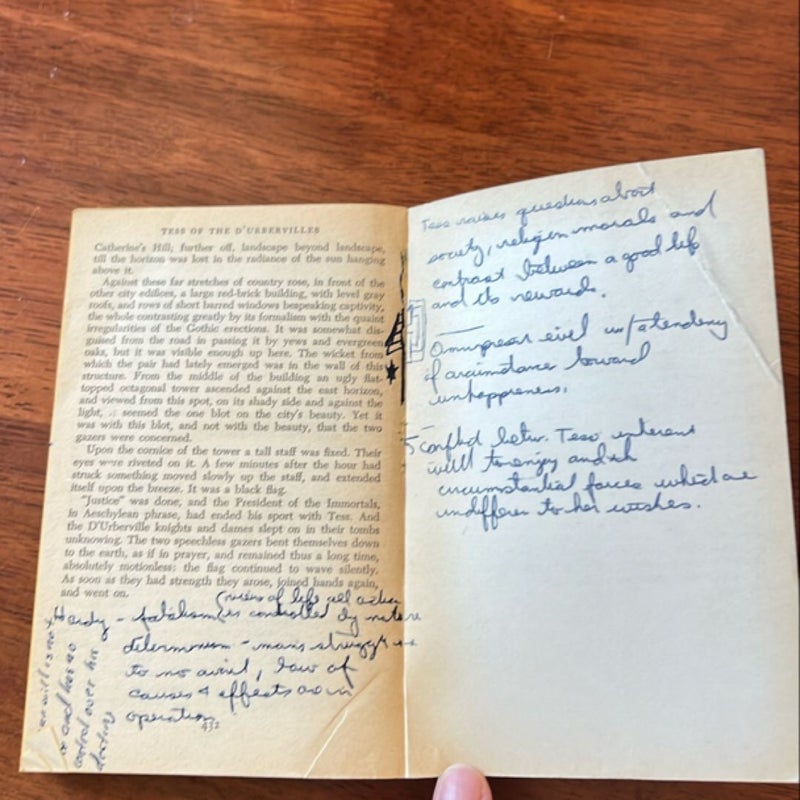 TESS OF THE D'URBERVILLES
Catherine's Hill; further off, landscape beyond landscape,
till the horizon was lost in the radiance of the sun hanging
above it.
Against these far stretches of country rose, in front of the
other city edifices, a large red-brick building, with level gray
roofs, and rows of short barred windows bespeaking captivity,
the whole contrasting greatly by its formalism with the quaint
irregularities of the Gothic erections. It was somewhat dis-
guised from the road in passing it by yews and evergreen
oaks, but it was visible enough up here. The wicket from
which the pair had lately emerged was in the wall of this
structure. From the middle of the building an ugly flat-
topped octagonal tower ascended against the east horizon,
and viewed from this spot, on its shady side and against the
light, it seemed the one blot on the city's beauty. Yet it
was with this blot, and not with the beauty, that the two
gazers were concerned.
Upon the cornice of the tower a tall staff was fixed. Their
eyes were riveted on it. A few minutes after the hour had
struck something moved slowly up the staff, and extended
itself upon the breeze. It was a black flag.
"Justice" was done, and the President of the Immortals,
in Aeschylean phrase, had ended his sport with Tess. And
the D'Urberville knights and dames slept on in their tombs
unknowing. The two speechless gazers bent themselves down
to the earth, as if in prayer, and remained thus a long time,
absolutely motionless: the flag continued to wave silently.
As soon as they had strength they arose, joined hands again,
and went on.
(views of life all action
Hardy - fatalism is controlled by nature
determinism - mans struggle
to no avail, law of
causes & effects are in
operation
432
will is not
and has no
control over his
destiny
Tess raises questions about
society, religion morals and
contrast between a good life
and its rewards.
Omnipresent evil w/ a tendency
of circumstance toward
unhappiness.
conflict betw. Tess' inherent
will to enjoy and
circumstantial forces which are
indifferen to her wishes.